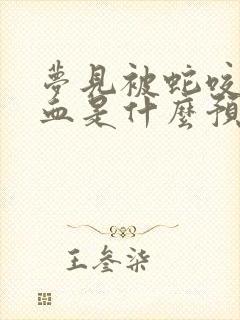 夢見被蛇咬
血是什麼預
王參柒